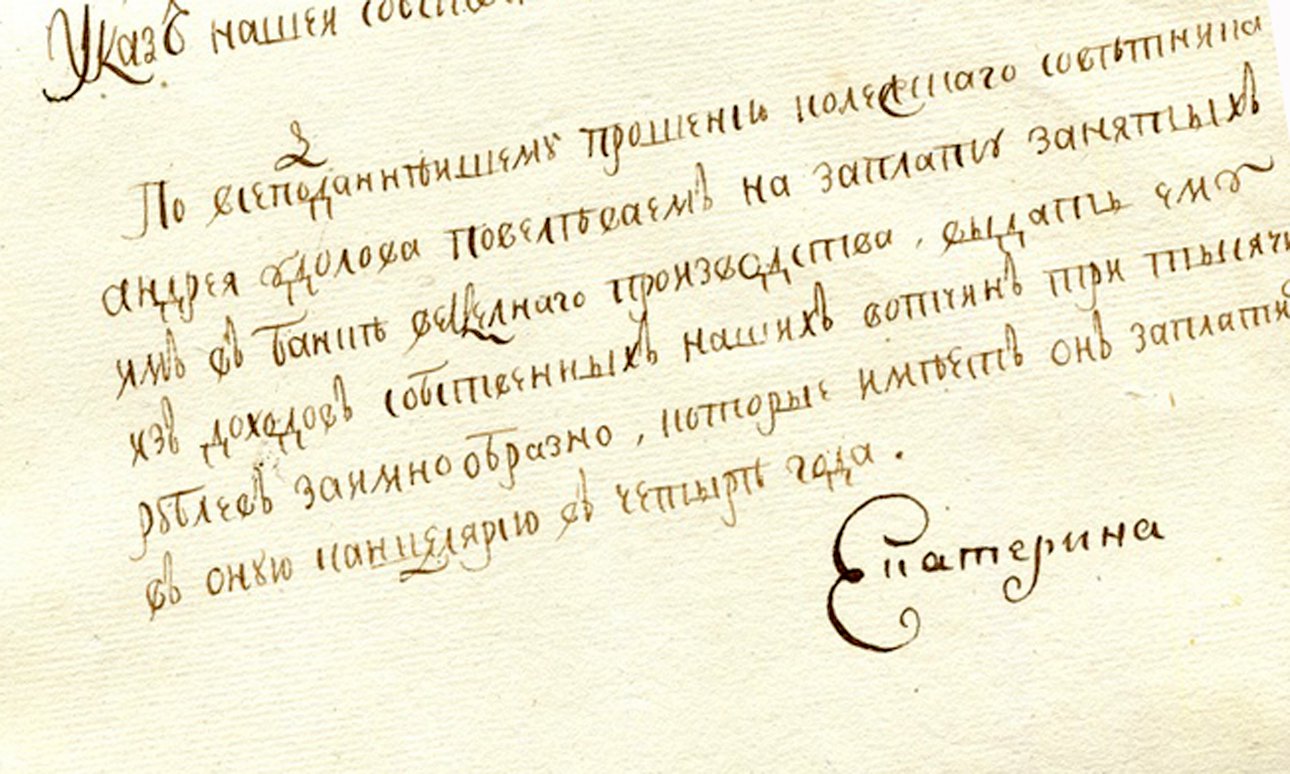 Указъ нашей
По всеподданнѣишему прошенію колежскаго совѣтника
андрея Удолова повелѣваемъ на заплату занятыхъ
имъ въ банкѣ вексельнаго производства, выдать ему
изъ доходовъ собственныхъ нашихъ вотчинъ три тысячи
рублевъ заимнообразно, которые имѣетъ онъ заплати
въ оную канцелярію въ четыре года.
Екатерина